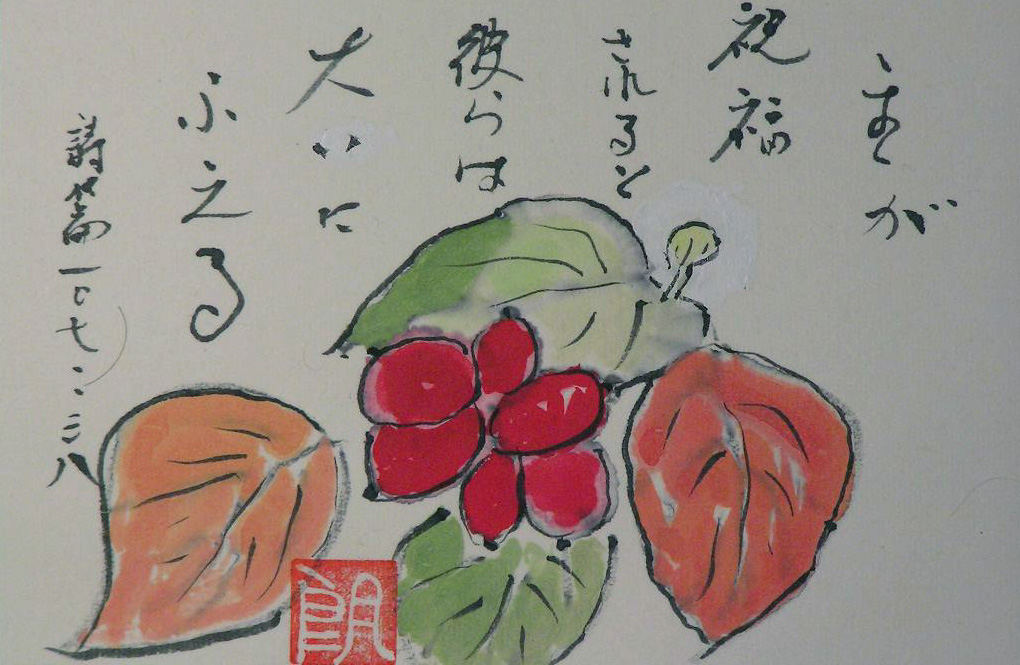 主が
祝福
されると
彼らは
大いに
ふえる
詩篇一〇七:三八
朗